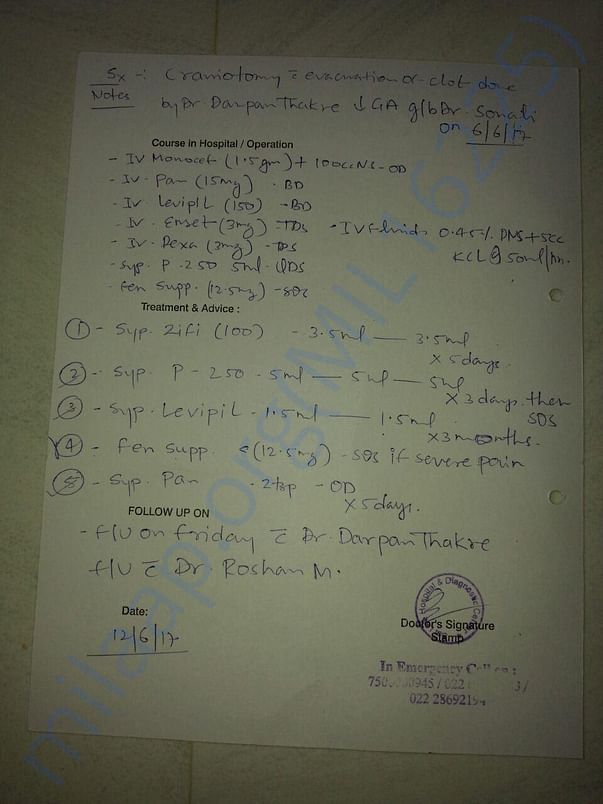 Sx -: Craniotomy c̄ evacuation of clot done
Notes by Dr. Darpan Thakre ↓ GA g/b Dr. Sonali
on 6/6/17
Course in Hospital / Operation
- IV Monocef (1.5gm) + 100cc NS - OD
- IV. Pan (15mg) - BD
- IV. Levipil (150) - BD
- IV. Emset (3mg) - TDS - IV fluids 0.45% DNS + 5cc
- IV. Dexa (3mg) - TDS KCL @ 50ml/hr.
- Syp. P-250 5ml - QDS
- fen Supp. (12.5mg) - SOS
Treatment & Advice :
① - Syp. Zifi (100) - 3.5ml — 3.5ml
X 5 days.
② - Syp. P-250 - 5ml — 5ml — 5ml
X 3 days. then
SOS
③ - Syp. Levipil - 1.5ml — 1.5ml
X 3 months.
④ - fen Supp. (12.5mg) - SOS if severe pain
⑤ - Syp. Pan - 2tsp - OD
X 5 days.
FOLLOW UP ON
- f/U on friday c̄ Dr. Darpan Thakre
f/U c̄ Dr. Roshan M.
Date:
12/6/17
Hospital & Diagnostic
Doctor's Signature
Stamp
In Emergency Call on :
022 2869219
milaap.org